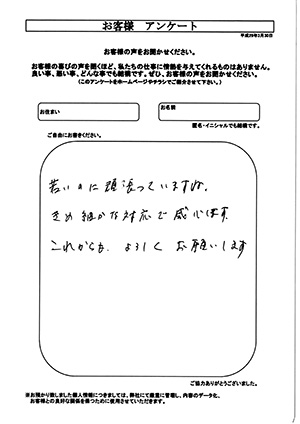 お客様 アンケート
平成29年3月30日
お客様の声をお聞かせください。
お客様の喜びの声を聞くほど、私たちの仕事に情熱を与えてくれるものはありません。
良い事、悪い事、どんな事でも結構です。ぜひ、お客様の声をお聞かせください。
(このアンケートをホームページやチラシでご紹介させて下さい。)
お住まい
お名前
匿名・イニシャルでも結構です。
ご自由にお書きください。
若いのに頑張っていますね。
きめ細かな対応で感心します。
これからも、よろしくお願いします
ご協力ありがとうございました。
※お預かり致しました個人情報につきましては、弊社にて厳重に管理し、内容のデータ化、
お客様との良好な関係を保つために使用させていただきます。